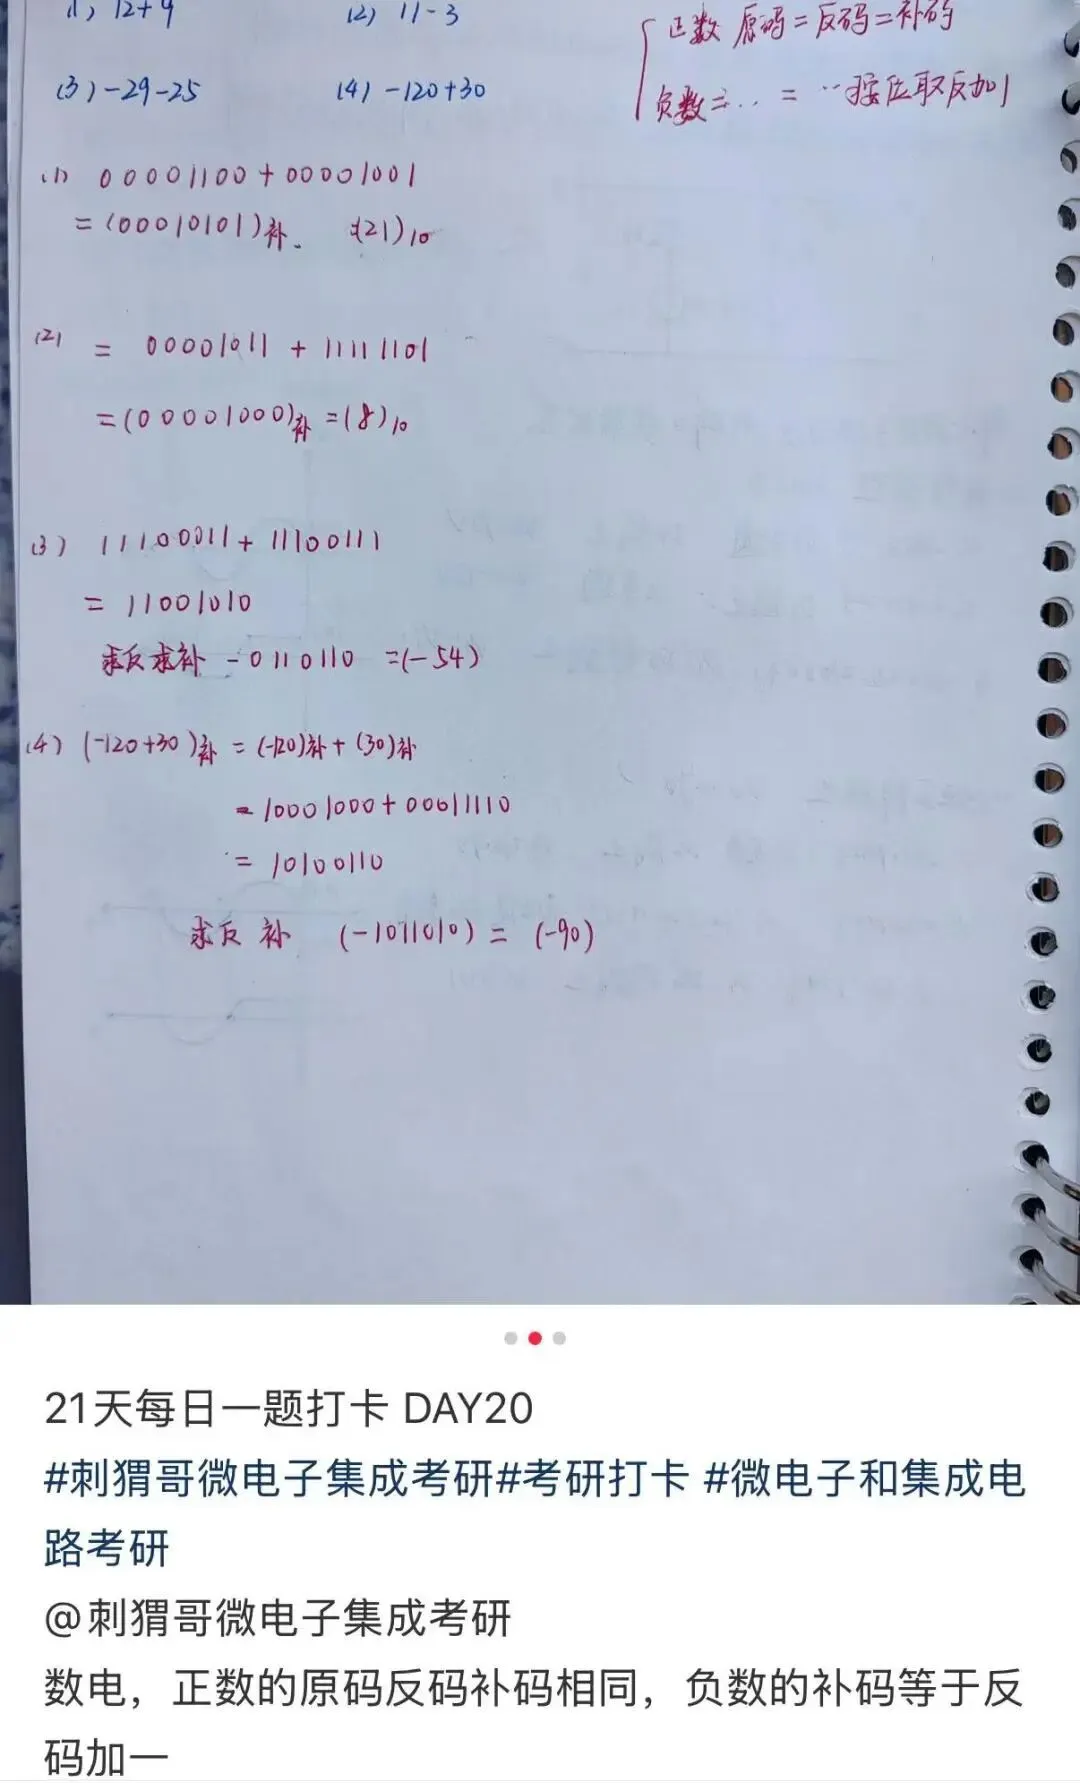 (1) 12+9 (2) 11-3
(3) -29-25 (4) -120+30
正数 原码=反码=补码
负数=.. = ..按位取反加1
(1) 00001100+00001001
=(00010101)补. =(21)10
(2) = 00001011 + 11111101
=(00001000)补=(8)10
(3) 11100011+11100111
= 11001010
求反求补 -0110110 =(-54)
(4) (-120+30)补=(-120)补+(30)补
=10001000+00011110
= 10100110
求反 补 (-1011010)= (-90)
21天每日一题打卡 DAY20
#刺猬哥微电子集成考研#考研打卡 #微电子和集成电
路考研
@刺猬哥微电子集成考研
数电，正数的原码反码补码相同，负数的补码等于反
码加一